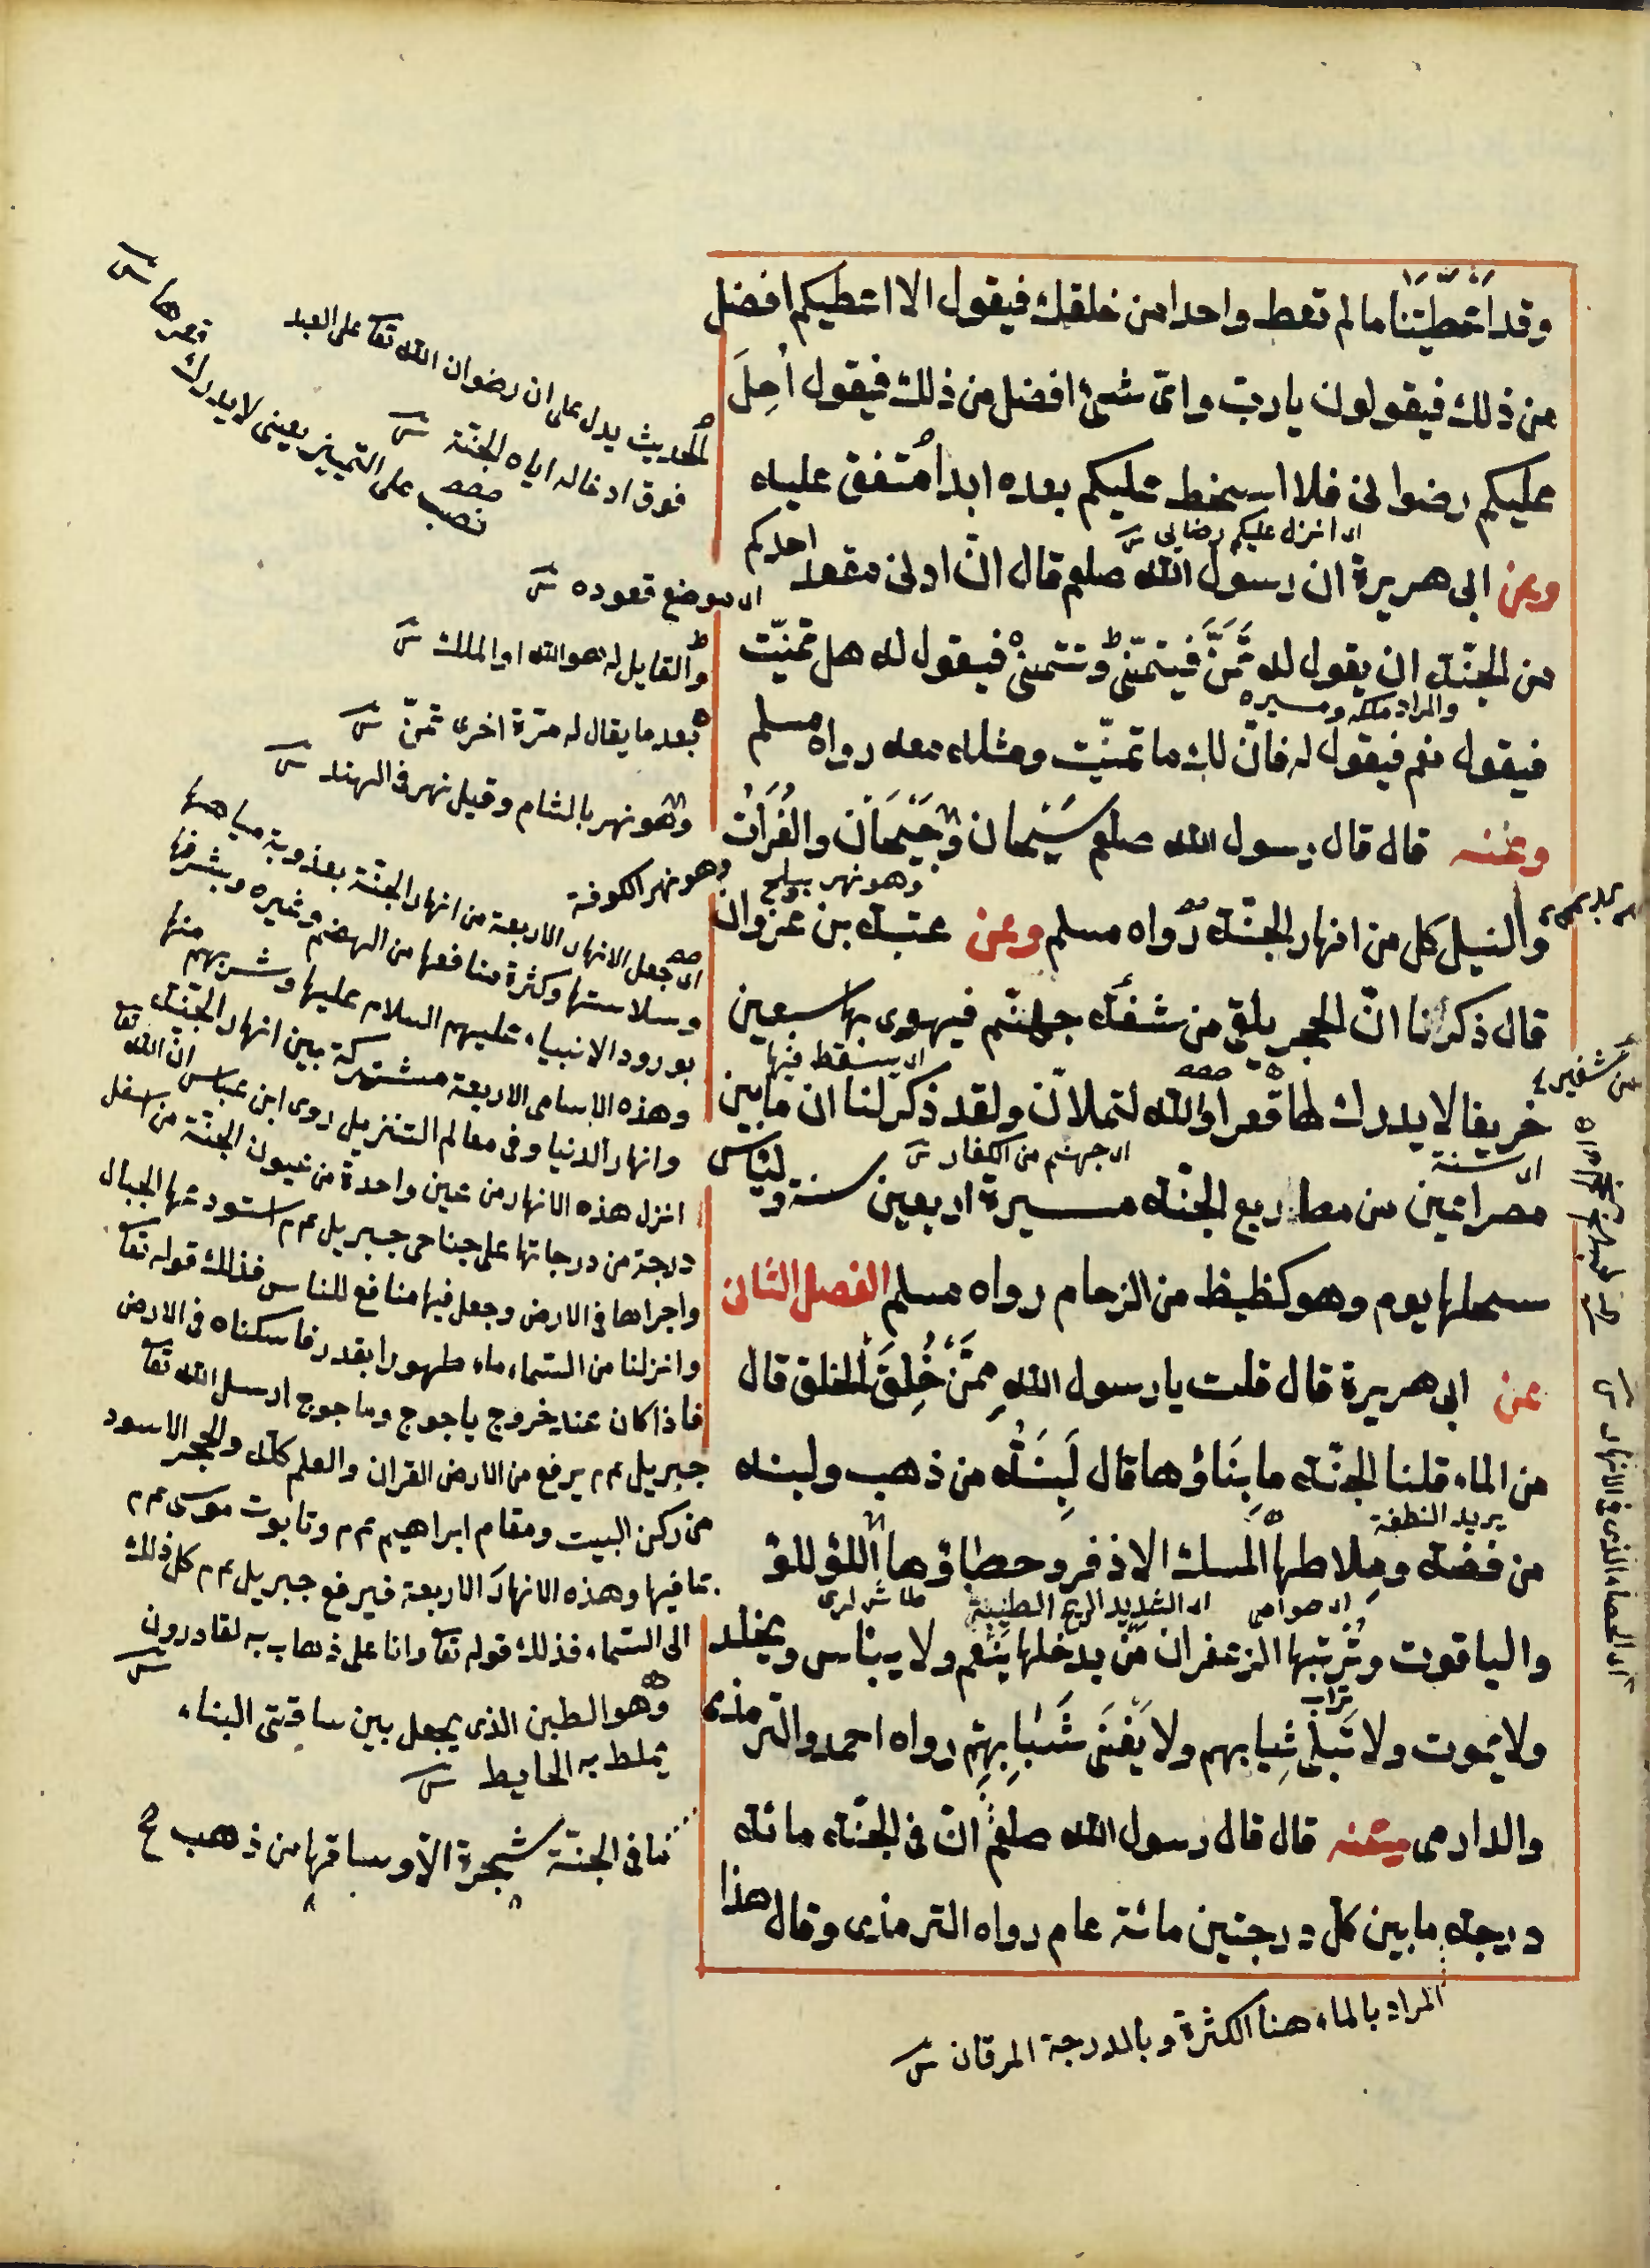 وقد اَعْطَيْتَنا ما لم تعط واحدا من خلقك فيقول الا اعطيكم افضل
من ذلك فيقولون يا ربّ واىّ شئ افضل من ذلك فيقول اُحِلَ
عليكم رضوانى فلا اسخط عليكم بعده ابدا متفق عليه
اى انزل عليكم رضايى
وعن ابى هريرة ان رسول الله صلعم قال انّ ادنى مقعد احدكم
من الجنّة ان يقول له تَمَنَّ فيتمنّى وتتمنى فيقول له هل تمنيّت
والمراد ملكه ومسيره
فيقول نعم فيقول له فانّ لك ما تمنيّت ومثله معه رواه مسلم
وعنه قال قال رسول الله صلعم سَيْحان وجَيْحَان والفُرَاتُ
وهو نهر ببلخ
والنيل كل من انهار الجنّة رواه مسلم وعن عتبة بن غزوان
قال ذكر لنا انّ الحجر يلقى من شفة جهنّم فيهوى بها سبعين
اى يسقط فيها
خريفا لا يدرك لها قعرا والله لتملانّ ولقد ذكر لنا ان ما بين
اى سنة
اى جهنم من الكفار
مصراعين من مصاريع الجنّة مسيرة اربعين سنة وليأتين
عليها يوم وهو كظيظ من الزحام رواه مسلم الفصل الثانى
عن ابى هريرة قال قلت يا رسول الله مِمَّ خُلِقَ الخلق قال
من الماء قلنا الجنّة ما بِنَاؤها قال لَبِنَةٌ من ذهب ولبنة
يريد النطفة
من فضة ومِلاطها المسك الاذفر وحصباؤها اللؤلؤ
اى الشديد الريح الطيبة
والياقوت وتُرْبتها الزعفران مَنْ يدخلها يَنْعم ولا يبأس ويخلد
تراب
ولا يموت ولا تَبلى ثِيابهم ولا يَفْنَى شَبابِهم رواه احمد والترمذى
والدارمى وعنه قال قال رسول الله صلعم انّ فى الجنّة مائة
درجة ما بين كلّ درجتين مائة عام رواه الترمذى وقال هذا
المراد بالماء هنا الكثرة وبالدرجة المرقان
الحديث يدل على ان رضوان الله تعا على العبد
فوق ادخاله اياه الجنّة
نصب على التمييز يعنى لا يدرك
قعرها
اى موضع قعوده
والقايل له هو الله او الملك
بعد ما يقال له مرّة اخرى تمنّ
وهو نهر بالشام وقيل نهر فى الهند
وهو نهر الكوفة
اى جعل الانهار الاربعة من انهار الجنّة بعذوبة مياهها
وسلاستها وكثرة منافعها من الهضم وغيره وبشرفها
بورود الانبياء عليهم السلام عليها وشربهم منها
وهذه الاسامى الاربعة مشتركة بين انهار الجنّة
وانهار الدنيا وفى معالم التنزيل روى ابن عباس انّ الله تعا
انزل هذه الانهار من عين واحدة من عيون الجنّة من اسفل
درجة من درجاتها على جناحى جبريل عم م استودعها الجبال
واجراها فى الارض وجعل فيها منافع للناس فذلك قوله تعا
وانزلنا من السّماء ماء طهورا بقدر فاسكناه فى الارض
فاذا كان عند خروج ياجوج وماجوج ارسل الله تعا
جبريل عم م يرفع من الارض القران والعلم كلّه والحجر الاسود
من ركن البيت ومقام ابراهيم عم م وتابوت موسى عم م
بما فيها وهذه الانهار الاربعة فيرفع جبريل عم م كل ذلك
الى السّماء فذلك قوله تعا وانا على ذهاب به لقادرون
وهو الطين الذى يجعل بين ساقتى البناء
يملط به الحايط
ما فى الجنّة شجرة الّا وساقها من ذهب ع
من شفير
اى الحصباء الذى فى الانهار